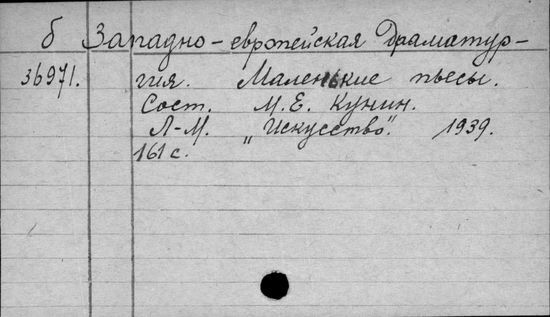 б Западно-европейская драматур-
36971. гия. Маленькие пьесы.
Сост. М. Е. Кунин.
Л-М. „Искусство". 1939.
161 с.